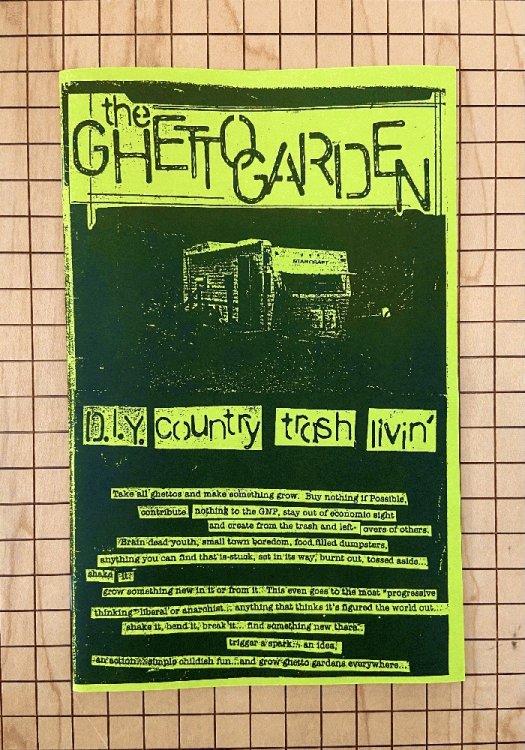 the
GHETTO GARDEN
STARCRAFT
D.I.Y. country trash livin'
Take all ghettos and make something grow. Buy nothing if Possible,
contribute nothing to the GNP, stay out of economic sight
and create from the trash and left- overs of others.
Brain dead youth, small town boredom, food filled dumpsters,
anything you can find that is stuck, set in its way, burnt out, tossed aside...
shake it
grow something new in it or from it. This even goes to the most "progressive
thinking" liberal or anarchist... anything that thinks it's figured the world out...
shake it, bend it, break it... find something new there..
trigger a spark... an idea,
an action... simple childish fun...and grow ghetto gardens everywhere...